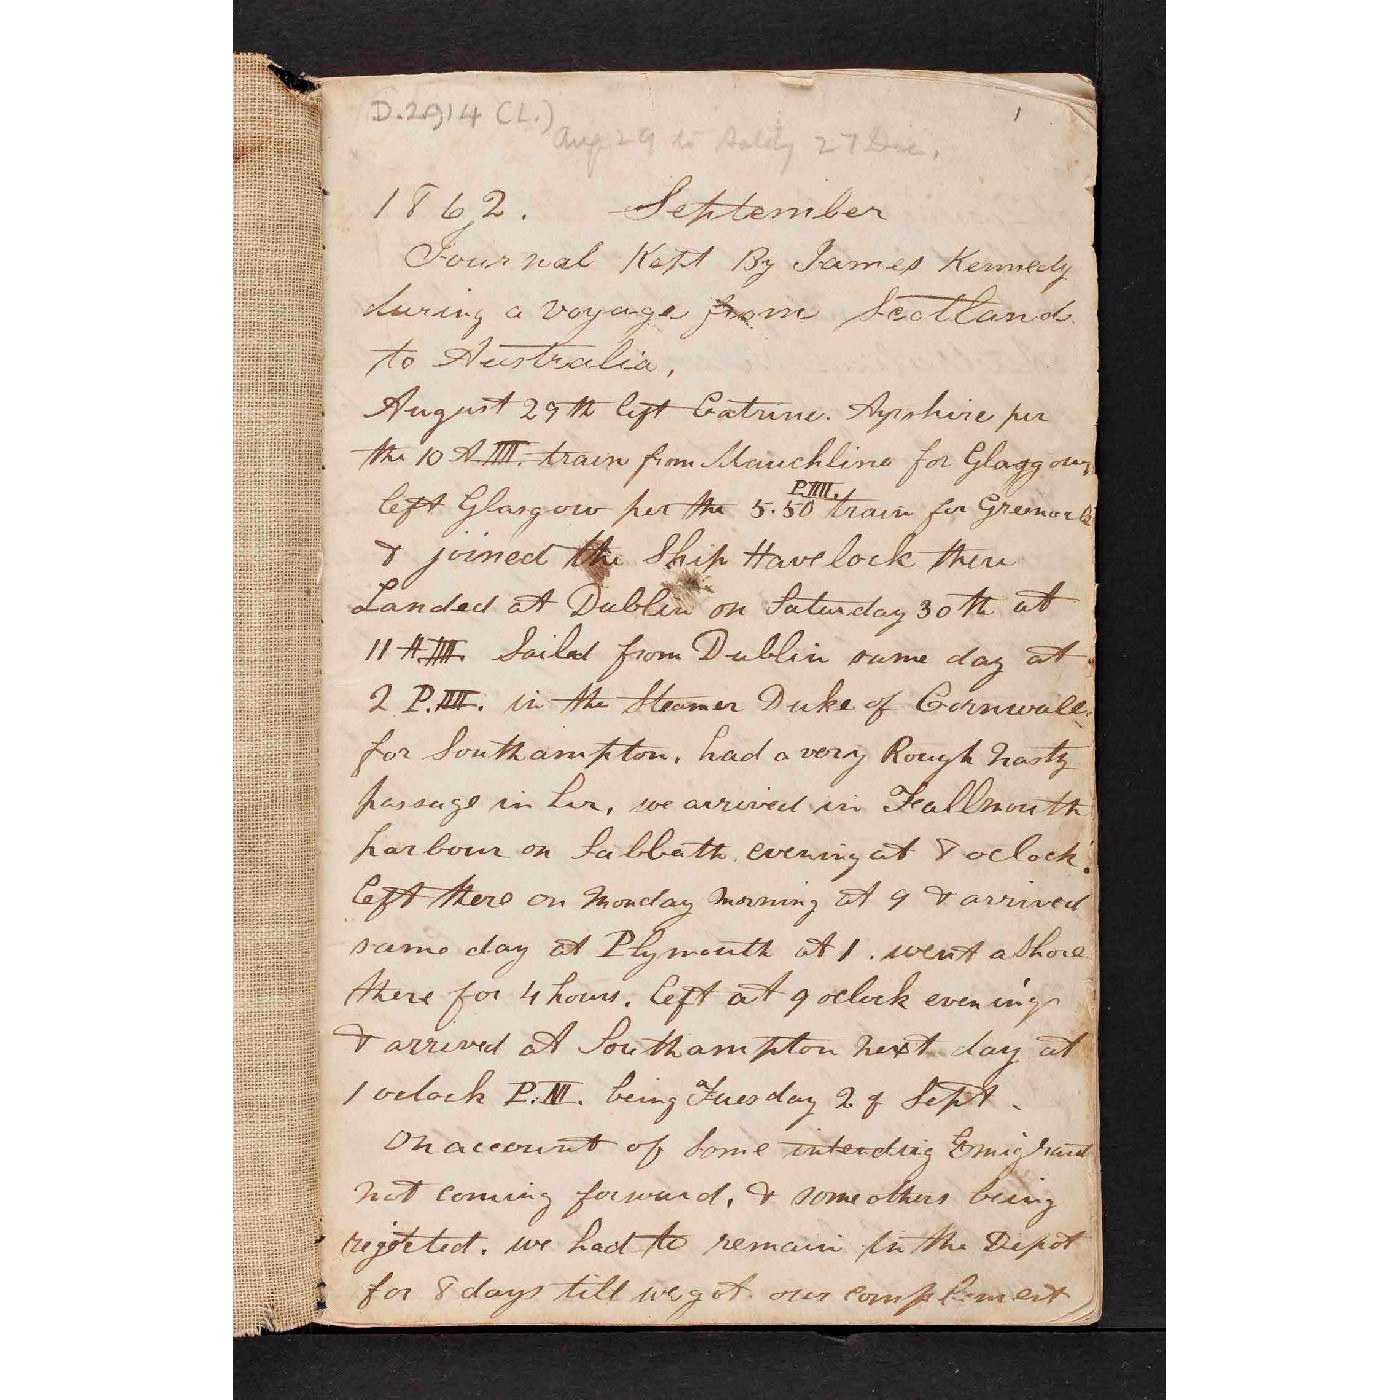 D.2914 (L.)
1
Aug 29 to 27 Dec.
1862. September
Journal Kept By James Kennedy
during a voyage from Scotland
to Australia,
August 29th left Catrine. Ayrshire per
the 10 A.M. train from Mauchline for Glasgow,
left Glasgow per the 5.50 P.M. train for Greenock
& joined the Ship Havelock there
Landed at Dublin on Saturday 30th at
11 A.M. Sailed from Dublin same day at
2 P.M. in the Steamer Duke of Cornwall
for Southampton. had a very Rough Nasty
passage in her, we arrived in Fallmouth
harbour on Sabbath evening at 8 oclock.
left there on Monday morning at 9 & arrived
same day at Plymouth at 1. went ashore
there for 4 hours. left at 9 oclock evening
& arrived at Southampton next day at
1 oclock P.M. being Tuesday 2 of Sept.
On account of some intendig Emigrant
not coming forward, & some others being
rejected. we had to remain in the Depot
for 8 days till we got our complement